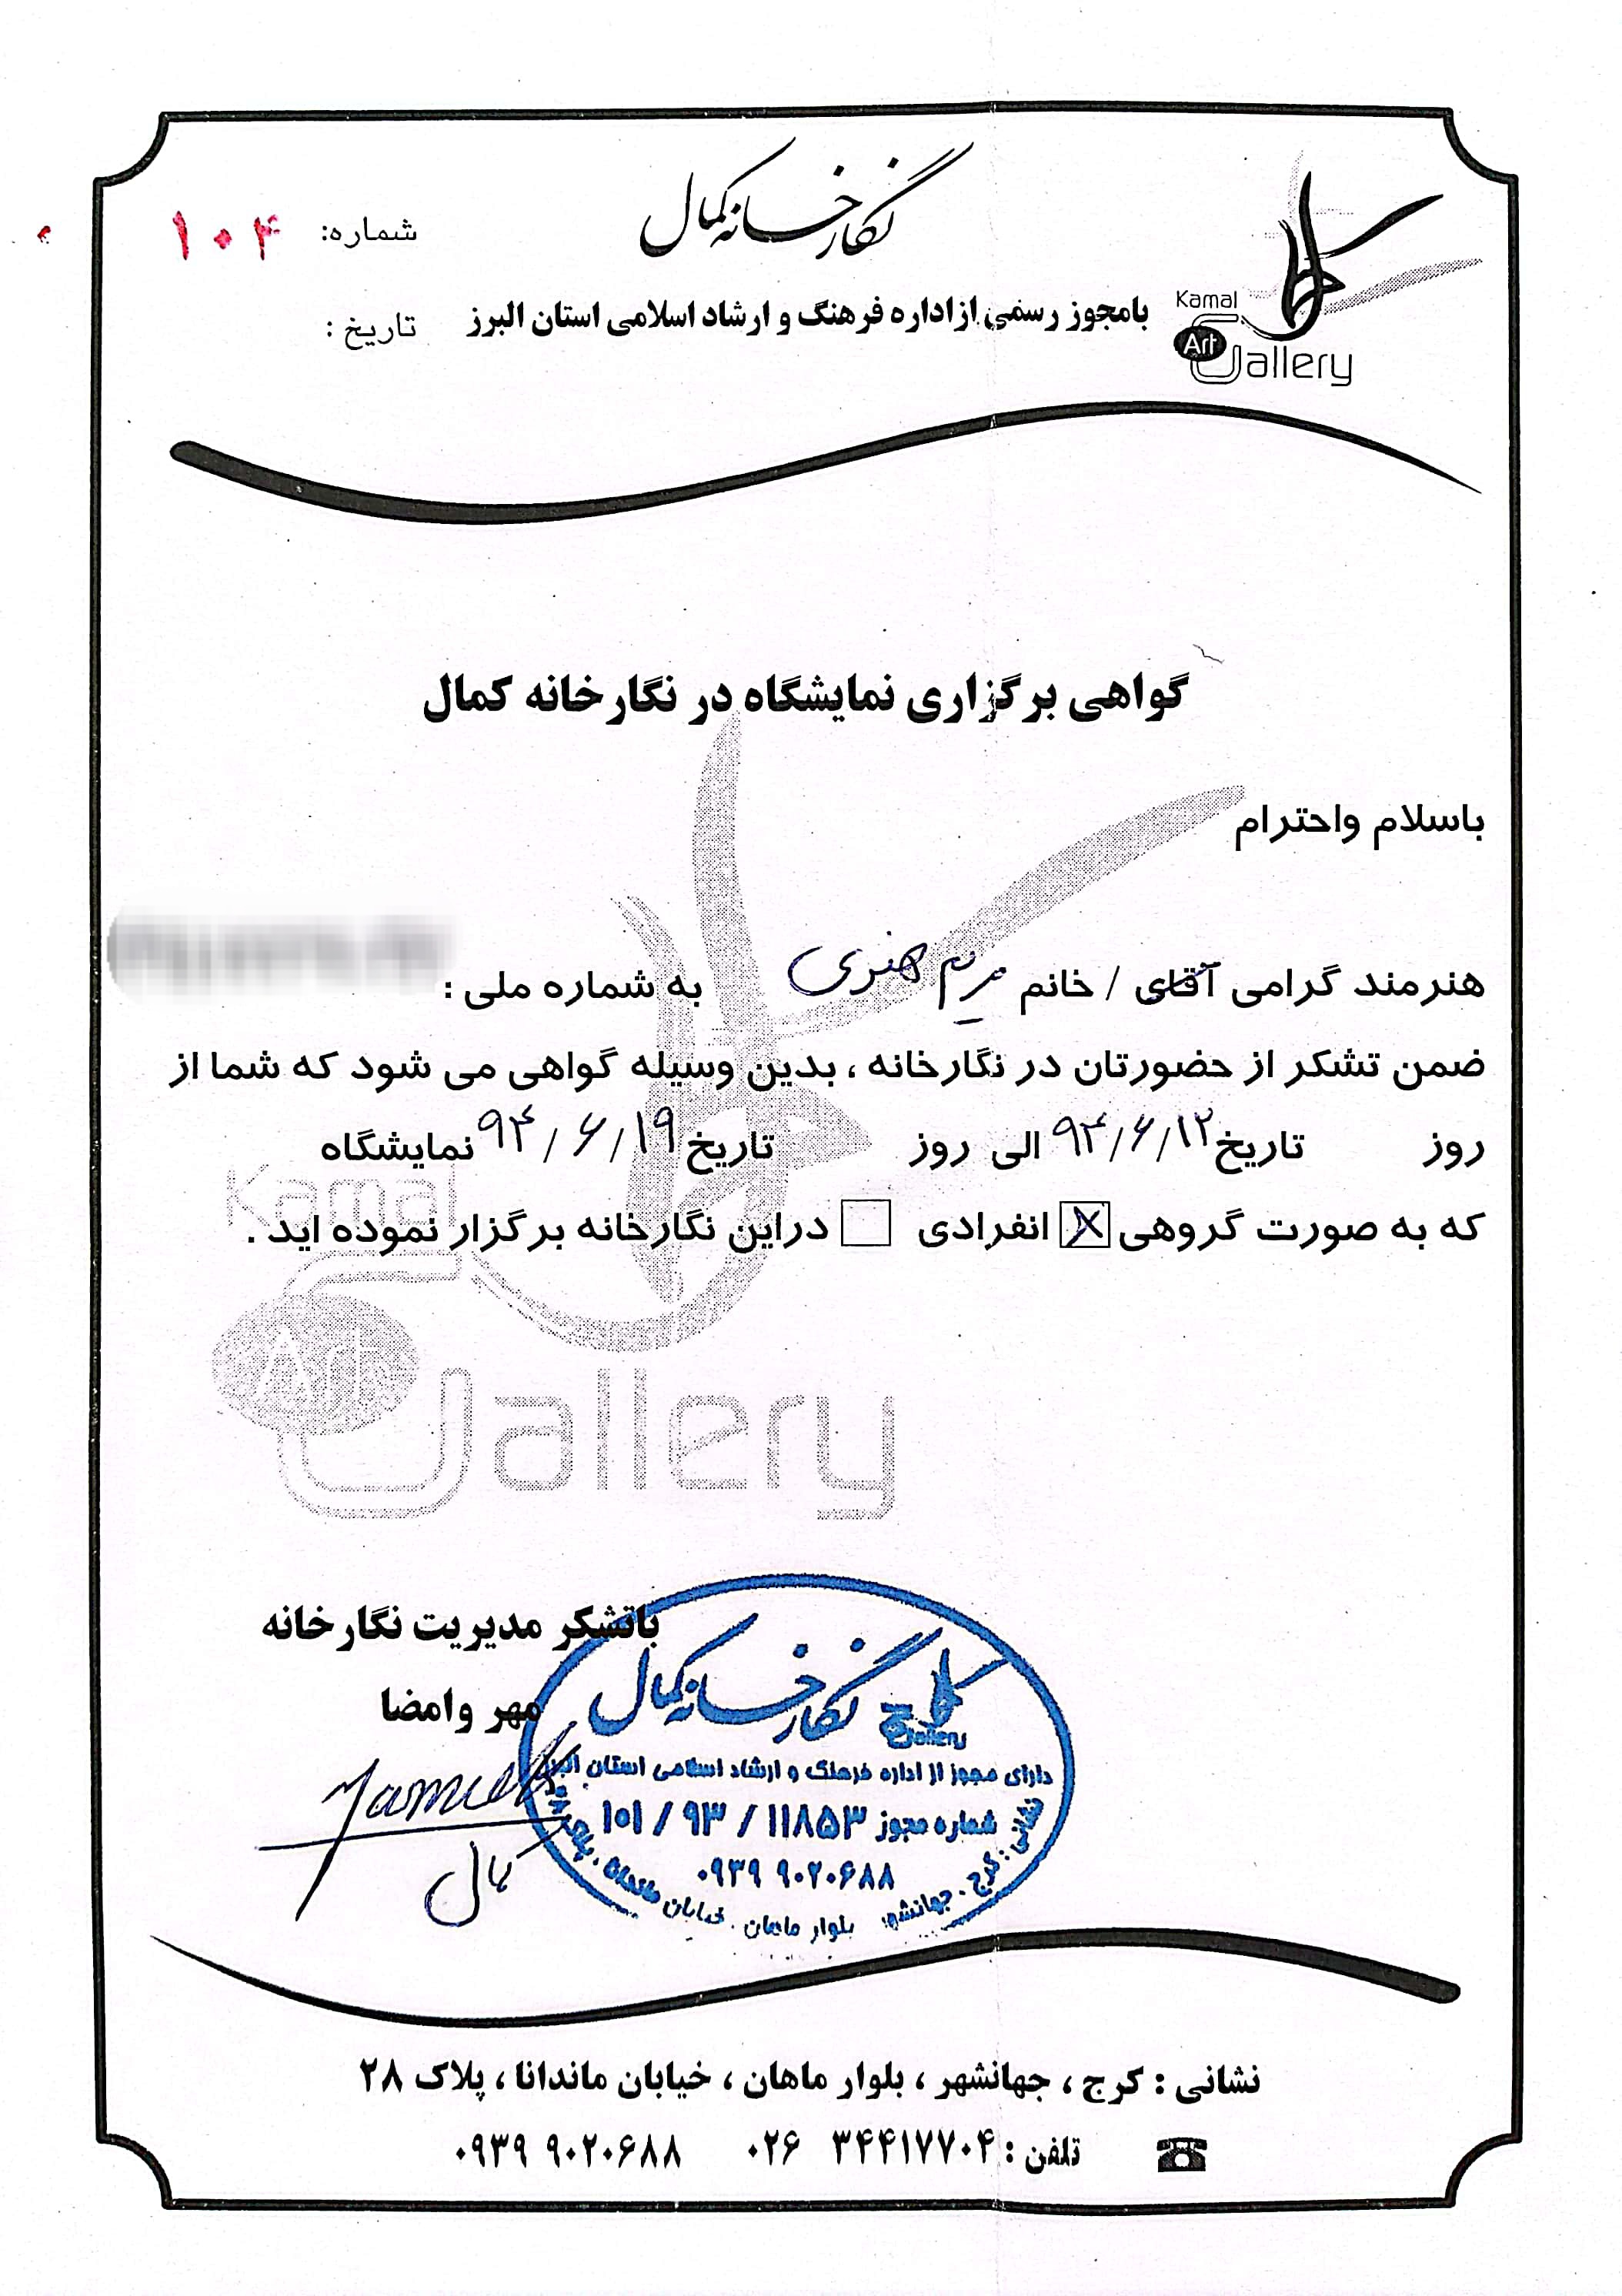 نگارخانه کمال
شماره: ۱۰۴
بامجوز رسمی از اداره فرهنگ و ارشاد اسلامی استان البرز
تاریخ :
Kamal
Art
Gallery
گواهی برگزاری نمایشگاه در نگارخانه کمال
باسلام واحترام
هنرمند گرامی آقای / خانم مریم هنری به شماره ملی :
ضمن تشکر از حضورتان در نگارخانه ، بدین وسیله گواهی می شود که شما از
روز تاریخ ۹۴/۶/۱۲ الی روز تاریخ ۹۴/۶/۱۹ نمایشگاه
که به صورت گروهی ☒ انفرادی ☐ دراین نگارخانه برگزار نموده اید .
Kamal
Art
Gallery
باتشکر مدیریت نگارخانه
مهر وامضا
کمال
نگارخانه کمال
Gallery
دارای مجوز از اداره فرهنگ و ارشاد اسلامی استان البرز
شماره مجوز ۱۱۸۵۳ / ۹۳ / ۱۰۱
۰۹۳۹ ۹۰۲۰۶۸۸
نشانی : کرج . جهانشهر . بلوار ماهان . خیابان ماندانا . پلاک
نشانی : کرج ، جهانشهر ، بلوار ماهان ، خیابان ماندانا ، پلاک ۲۸
تلفن : ۳۴۴۱۷۷۰۴ ۰۲۶ ۰۹۳۹ ۹۰۲۰۶۸۸